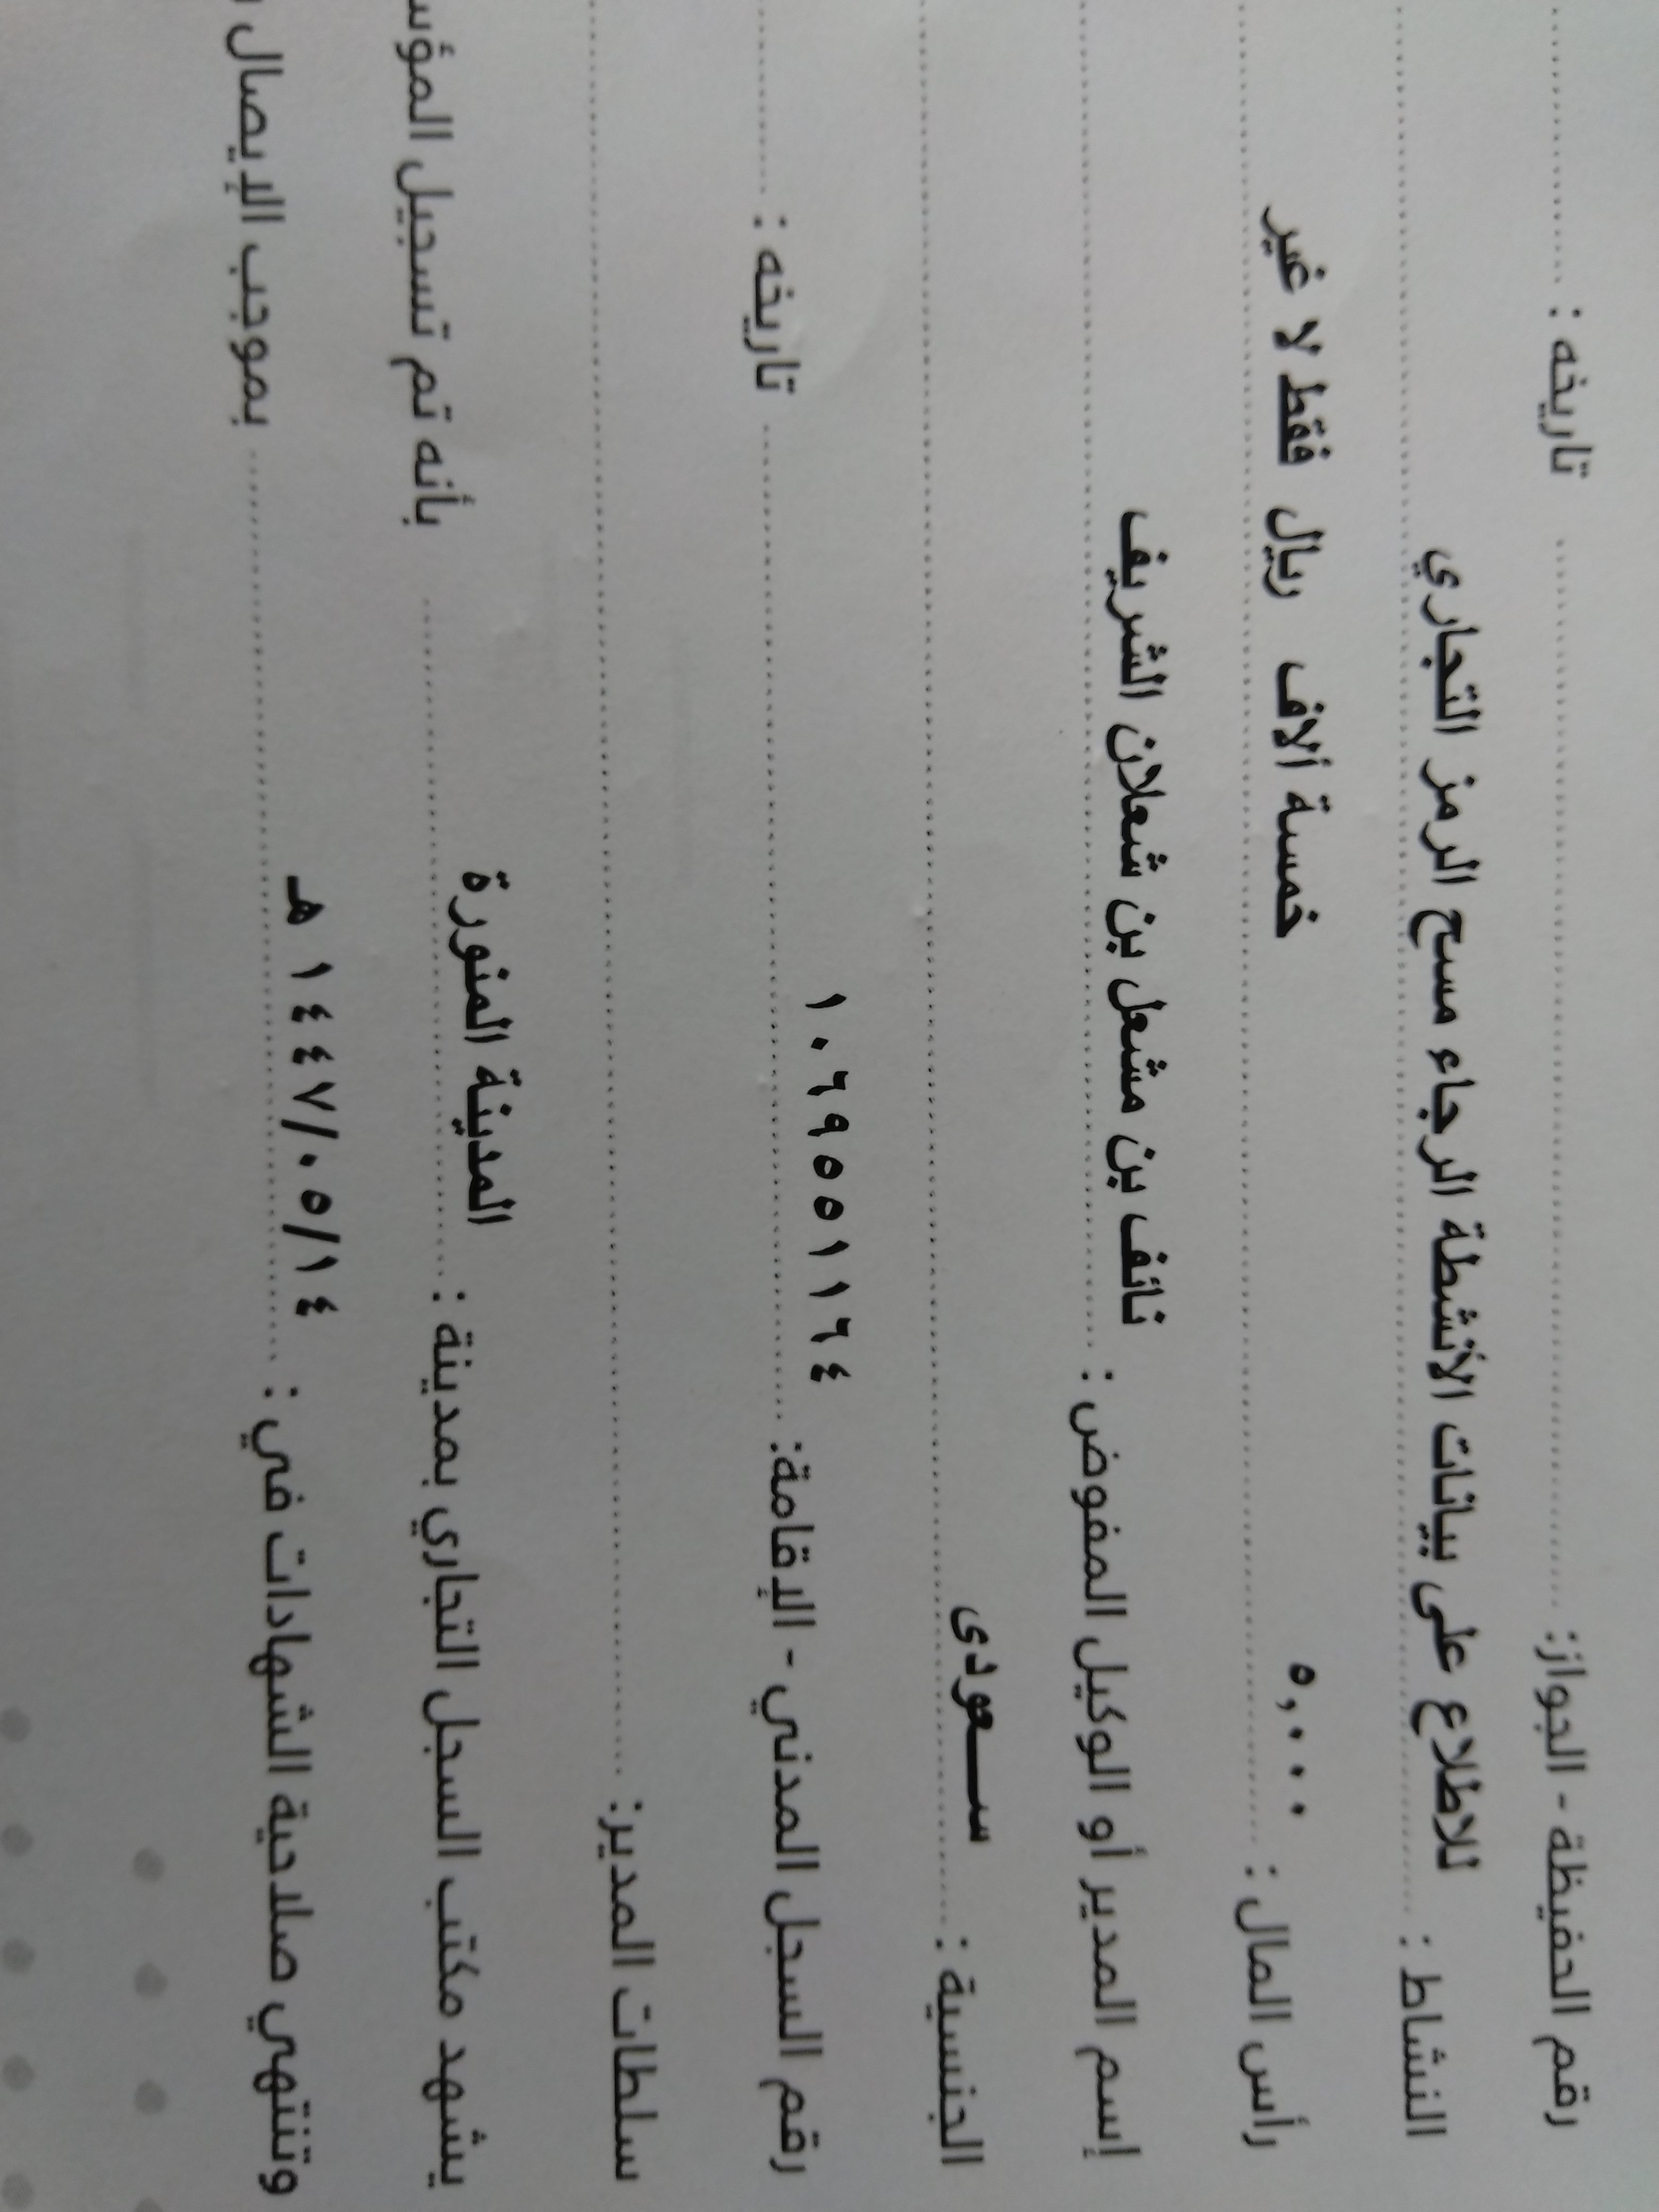 رقم الحفيظة - الجواز: تاريخه :
النشاط : للاطلاع على بيانات الأنشطة الرجاء مسح الرمز التجاري
رأس المال : ٥,٠٠٠ خمسة ألاف ريال فقط لا غير
إسم المدير أو الوكيل المفوض : نائف بن مشعل بن شعلان الشريف
الجنسية : سعودى
رقم السجل المدني - الإقامة: ١٠٦٩٥٥١١٦٤ تاريخه :
سلطات المدير:
يشهد مكتب السجل التجاري بمدينة : المدينة المنورة بأنه تم تسجيل
وتنتهي صلاحية الشهادات في : ١٤٤٧/٠٥/١٤ هـ بموجب الإيصال